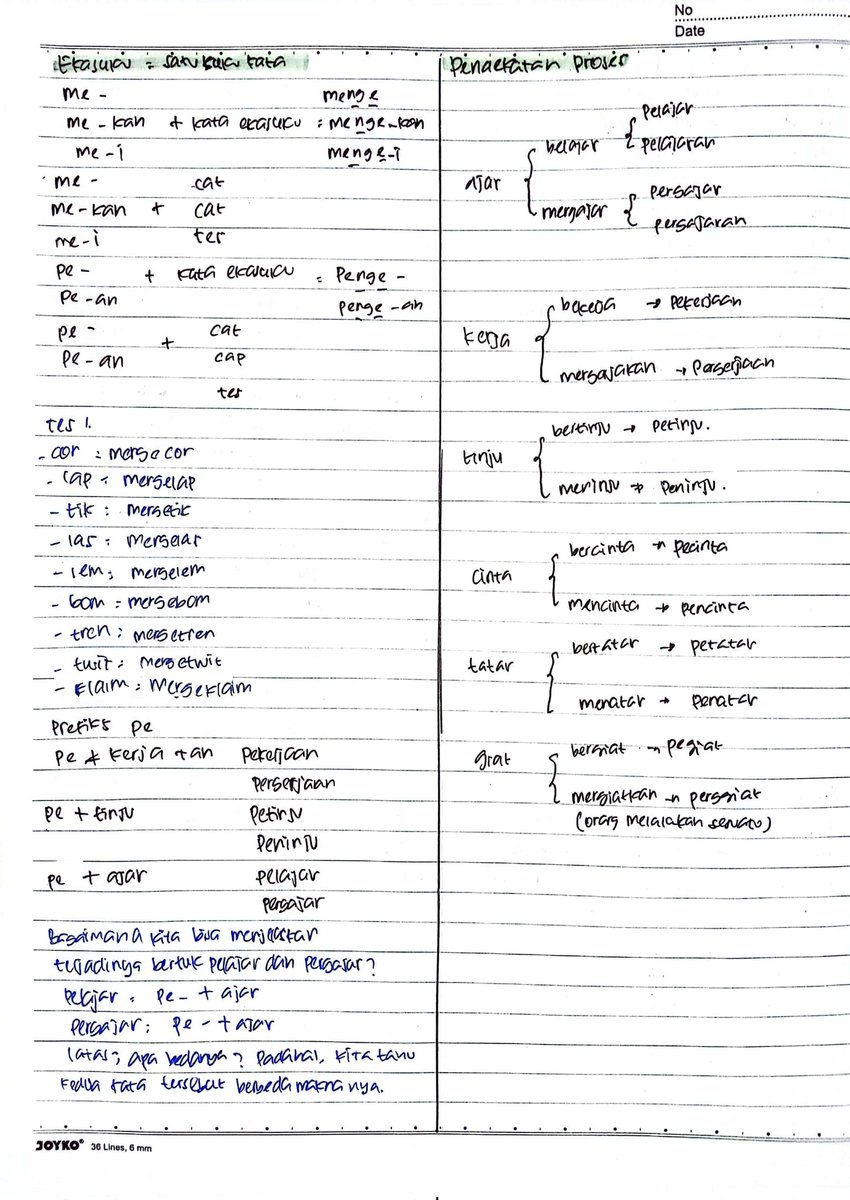 No
Date
Ekasuku = satu suku kata
me - menge
me - kan + kata ekasuku = menge-kan
me - i menge-i
me - cat
me-kan + cat
me-i ter
pe - + kata ekasuku = Penge -
Pe-an penge-an
pe - + cat
Pe-an cap
tes
tes 1.
- cor : mengecor
- cap : mengelap
- tik : mengetik
- las : mengelas
- lem : mengelem
- bom : mengebom
- tren : mengetren
- twit : mengetwit
- klaim : mengeklaim
Prefiks pe
pe + kerja + an pekerjaan
pengerjaan
pe + tinju petinju
peninju
pe + ajar pelajar
pengajar
Bagaimana kita bisa menjelaskan
terjadinya bentuk pelajar dan pengajar?
pelajar : pe- + ajar
pengajar : pe - + ajar
latas; apa bedanya? padahal, kita tahu
kedua kata tersebut berbeda maknanya.
Pendekatan proses
ajar
belajar
pelajar
pelajaran
mengajar
pengajar
pengajaran
kerja
bekerja → pekerjaan
mengerjakan → Pengerjaan
tinju
bertinju → petinju.
meninju → peninju.
cinta
bercinta → pecinta
mencinta → pencinta
tatar
bertatar → petatar
menatar → penatar
giat
bergiat → pegiat
mengiatkan → penggiat
(orang melalakan senatu)
JOYKO® 36 Lines, 6 mm